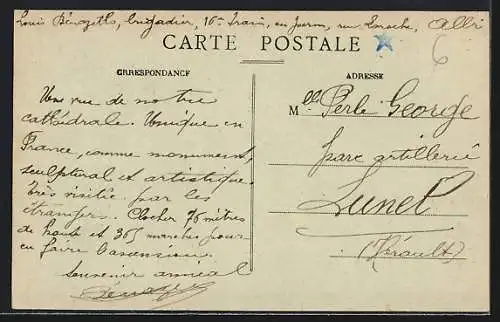 Louis Bénazeth, brigadier, 16e Train, en perm, rue Laroche, Albi
CARTE POSTALE
CRRESPONDANCE
ADRESSE
6
Une vue de notre
cathédrale. Unique en
France, comme monument,
sculptural et artistique.
Très visitée par les
étrangers. Clocher 76 mètres
de haute et 365 marches pour
en faire l'ascension.
Souvenir amical
Mlle Perle George
parc artillerie
Lunel
(Hérault)